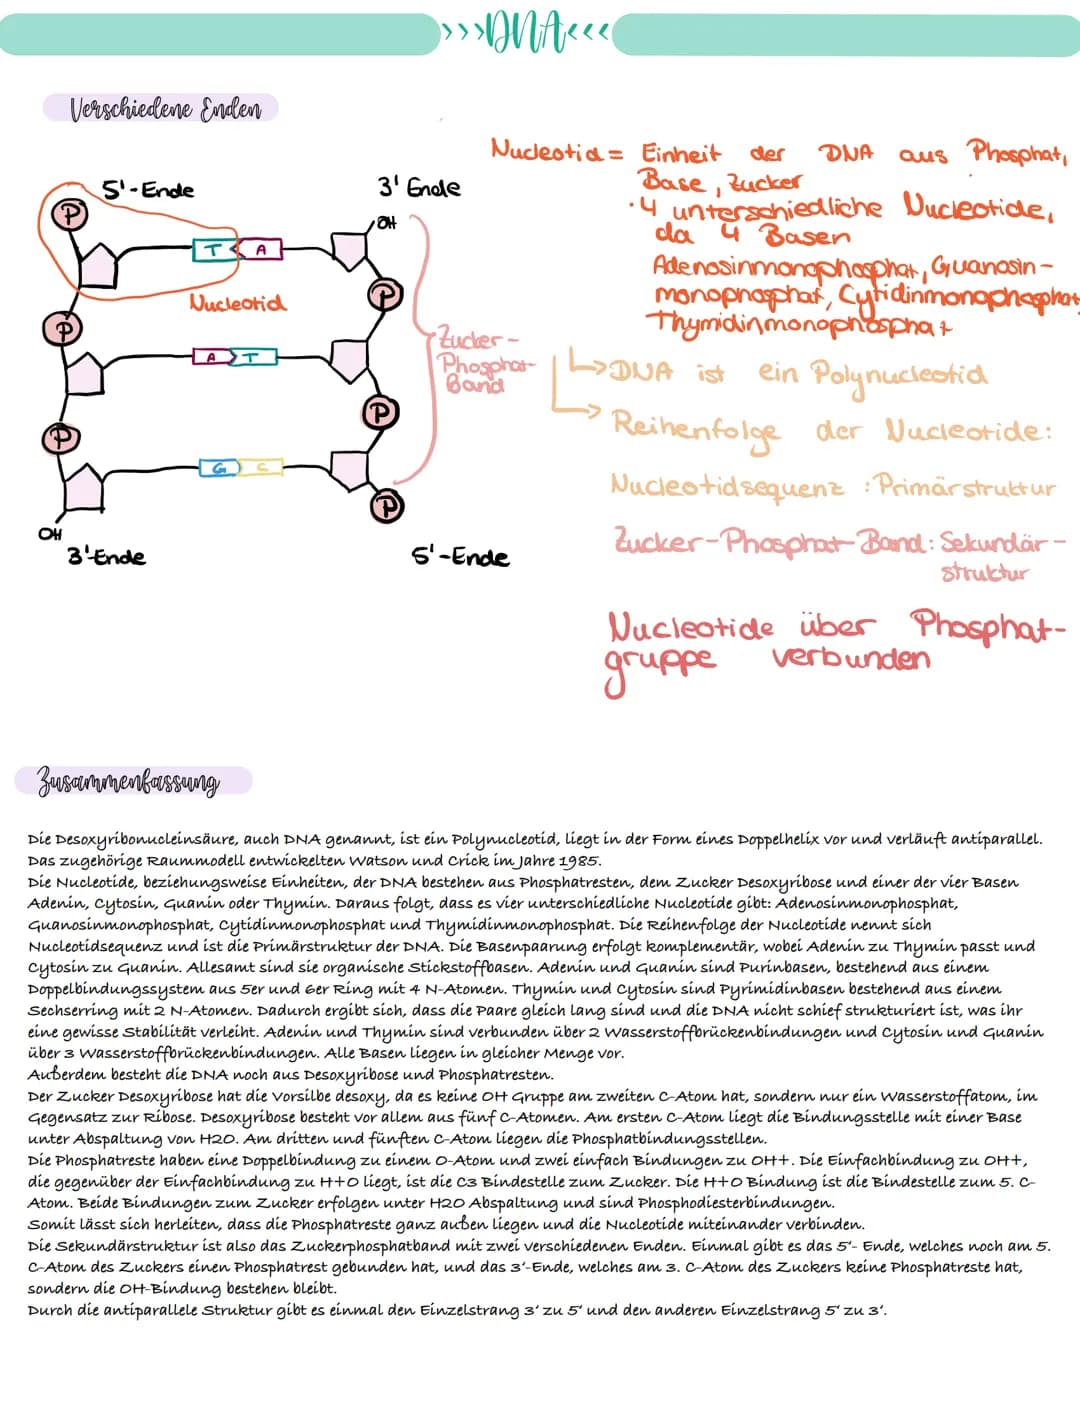 >>>DNA<<<
Verschiedene Enden
5'-Ende
3' Ende
P
OH
T A
Nucleotid
P
P
A T
Zucker-
Phosphat-
Band
P
P
G C
P
OH
3'-Ende
5'-Ende
Nucleotid = Einheit der DNA aus Phosphat,
Base, Zucker
· 4 unterschiedliche Nucleotide,
da 4 Basen
Adenosinmonophosphat, Guanosin-
monophosphat, Cytidinmonophosphat
Thymidinmonophosphat
↳ DNA ist ein Polynucleotid
→ Reihenfolge der Nucleotide:
Nucleotidsequenz : Primärstruktur
Zucker-Phosphat-Band: Sekundär-
struktur
Nucleotide über Phosphat-
gruppe verbunden
Zusammenfassung
Die Desoxyribonucleinsäure, auch DNA genannt, ist ein Polynucleotid, liegt in der Form eines Doppelhelix vor und verläuft antiparallel.
Das zugehörige Raummodell entwickelten Watson und Crick im Jahre 1985.
Die Nucleotide, beziehungsweise Einheiten, der DNA bestehen aus Phosphatresten, dem Zucker Desoxyribose und einer der vier Basen
Adenin, Cytosin, Guanin oder Thymin. Daraus folgt, dass es vier unterschiedliche Nucleotide gibt: Adenosinmonophosphat,
Guanosinmonophosphat, Cytidinmonophosphat und Thymidinmonophosphat. Die Reihenfolge der Nucleotide nennt sich
Nucleotidsequenz und ist die Primärstruktur der DNA. Die Basenpaarung erfolgt komplementär, wobei Adenin zu Thymin passt und
Cytosin zu Guanin. Allesamt sind sie organische Stickstoffbasen. Adenin und Guanin sind Purinbasen, bestehend aus einem
Doppelbindungssystem aus 5er und 6er Ring mit 4 N-Atomen. Thymin und Cytosin sind Pyrimidinbasen bestehend aus einem
Sechserring mit 2 N-Atomen. Dadurch ergibt sich, dass die Paare gleich lang sind und die DNA nicht schief strukturiert ist, was ihr
eine gewisse Stabilität verleiht. Adenin und Thymin sind verbunden über 2 Wasserstoffbrückenbindungen und Cytosin und Guanin
über 3 Wasserstoffbrückenbindungen. Alle Basen liegen in gleicher Menge vor.
Außerdem besteht die DNA noch aus Desoxyribose und Phosphatresten.
Der Zucker Desoxyribose hat die Vorsilbe desoxy, da es keine OH Gruppe am zweiten C-Atom hat, sondern nur ein Wasserstoffatom, im
Gegensatz zur Ribose. Desoxyribose besteht vor allem aus fünf C-Atomen. Am ersten C-Atom liegt die Bindungsstelle mit einer Base
unter Abspaltung von H2O. Am dritten und fünften C-Atom liegen die Phosphatbindungsstellen.
Die Phosphatreste haben eine Doppelbindung zu einem O-Atom und zwei einfach Bindungen zu OH+. Die Einfachbindung zu OH+,
die gegenüber der Einfachbindung zu H+O liegt, ist die C3 Bindestelle zum Zucker. Die H+O Bindung ist die Bindestelle zum 5. C-
Atom. Beide Bindungen zum Zucker erfolgen unter H2O Abspaltung und sind Phosphodiesterbindungen.
Somit lässt sich herleiten, dass die Phosphatreste ganz außen liegen und die Nucleotide miteinander verbinden.
Die Sekundärstruktur ist also das Zuckerphosphatband mit zwei verschiedenen Enden. Einmal gibt es das 5'- Ende, welches noch am 5.
C-Atom des Zuckers einen Phosphatrest gebunden hat, und das 3'-Ende, welches am 3. C-Atom des Zuckers keine Phosphatreste hat,
sondern die OH-Bindung bestehen bleibt.
Durch die antiparallele Struktur gibt es einmal den Einzelstrang 3' zu 5' und den anderen Einzelstrang 5' zu 3'.